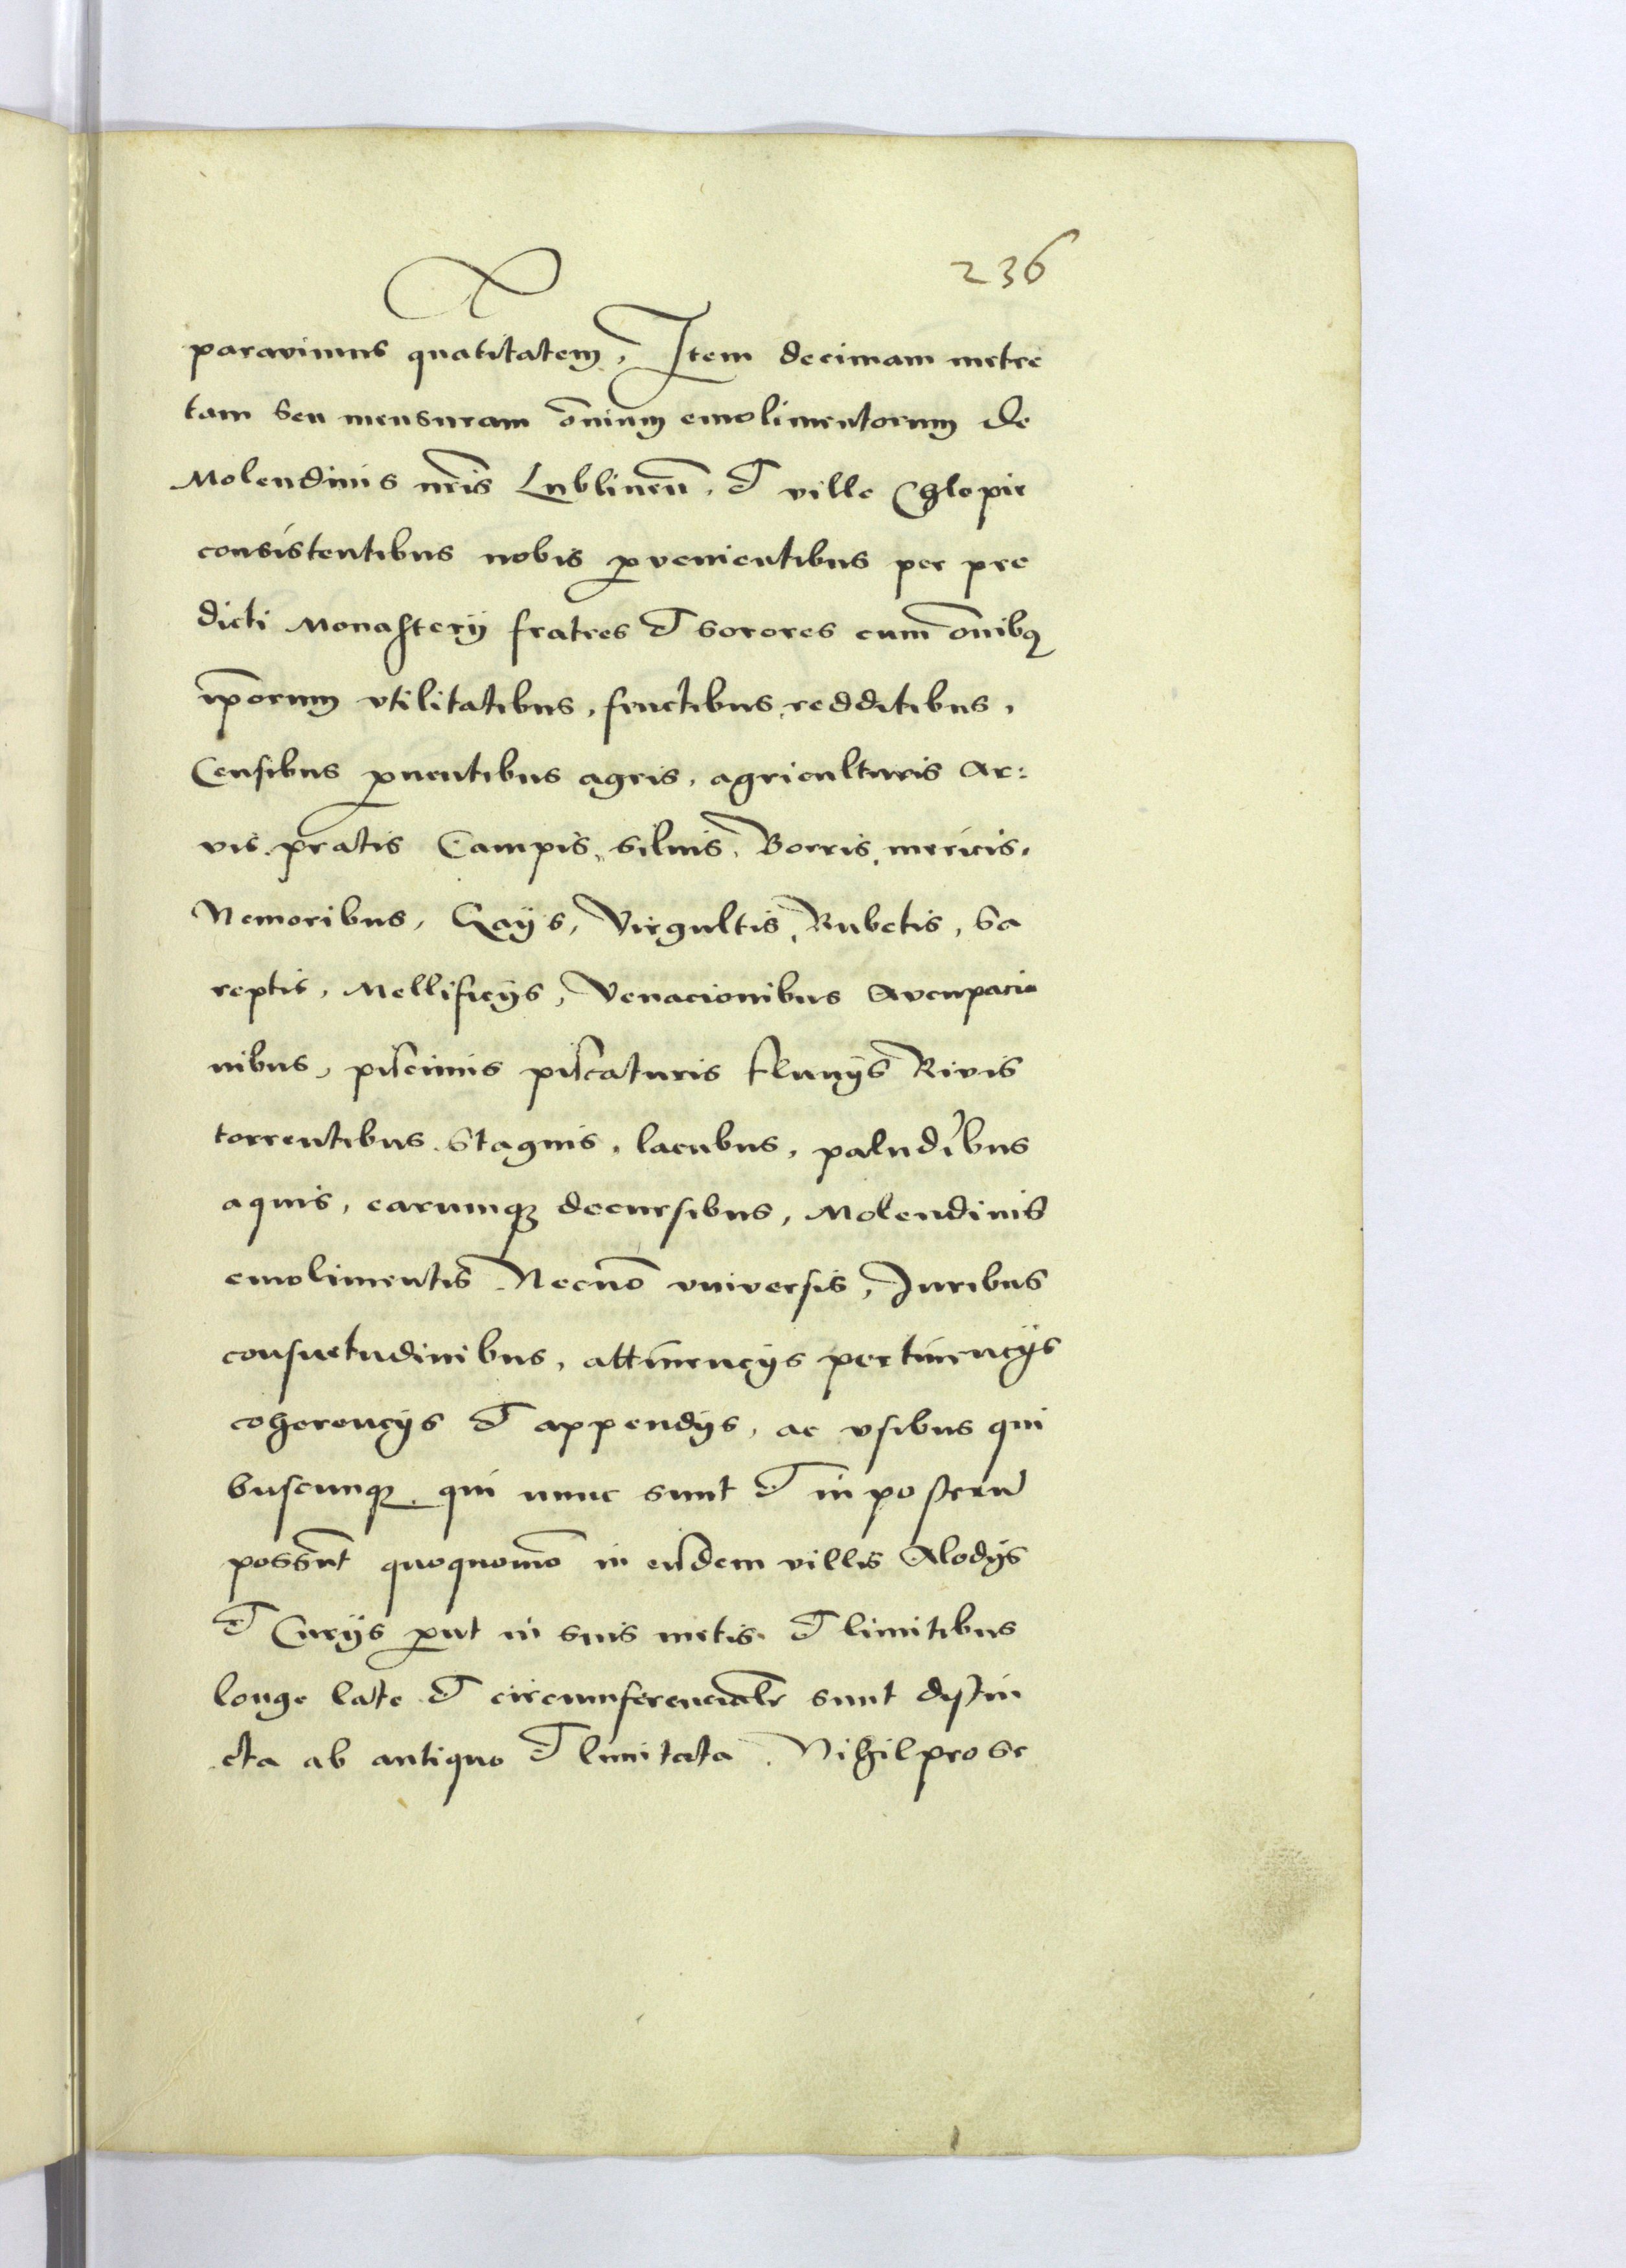 236
paravimus quatitatem, Item decimam metre
tam seu mensuram om̄nium emolimentorum de
Molendinis nr̄is Lublinen̄. et ville Chlopie
consistentibus nobis ꝓvenientibus per pre
dicti Monasterij fratres et sorores cum om̄ibꝫ
ip̄orum vtilitatibus, fructibus, redditibus,
Censibus ꝓuentibus agris, agriculturis Ar:
vis. pratis Campis, siluis, Borris, mericis,
Nemoribus, Gays, Virgultis, Rubetis, Sa
reptis, Mellificijs, Venacionibus Aucupacio
nibus, piscinis piscaturis fluuijs Rivis
torrentibus. Stagnis, lacubus, paludibus
aquis, earumqꝫ decursibus, Molendinis
emolimentis Necnō vniversis, Iuribus
consuetudinibus, attinencijs pertinencijs
coherencijs et appendijs, ac vsibus qui
buscunqꝫ. qui nunc sunt et in posterū
possūnt quoquomō in eisdem villis Alodijs
et Curijs ꝓut in suis metis. et limitibus
longe late et circumferencialr̄ sunt distin
cta ab antiquo et limitata. Nihil pro se